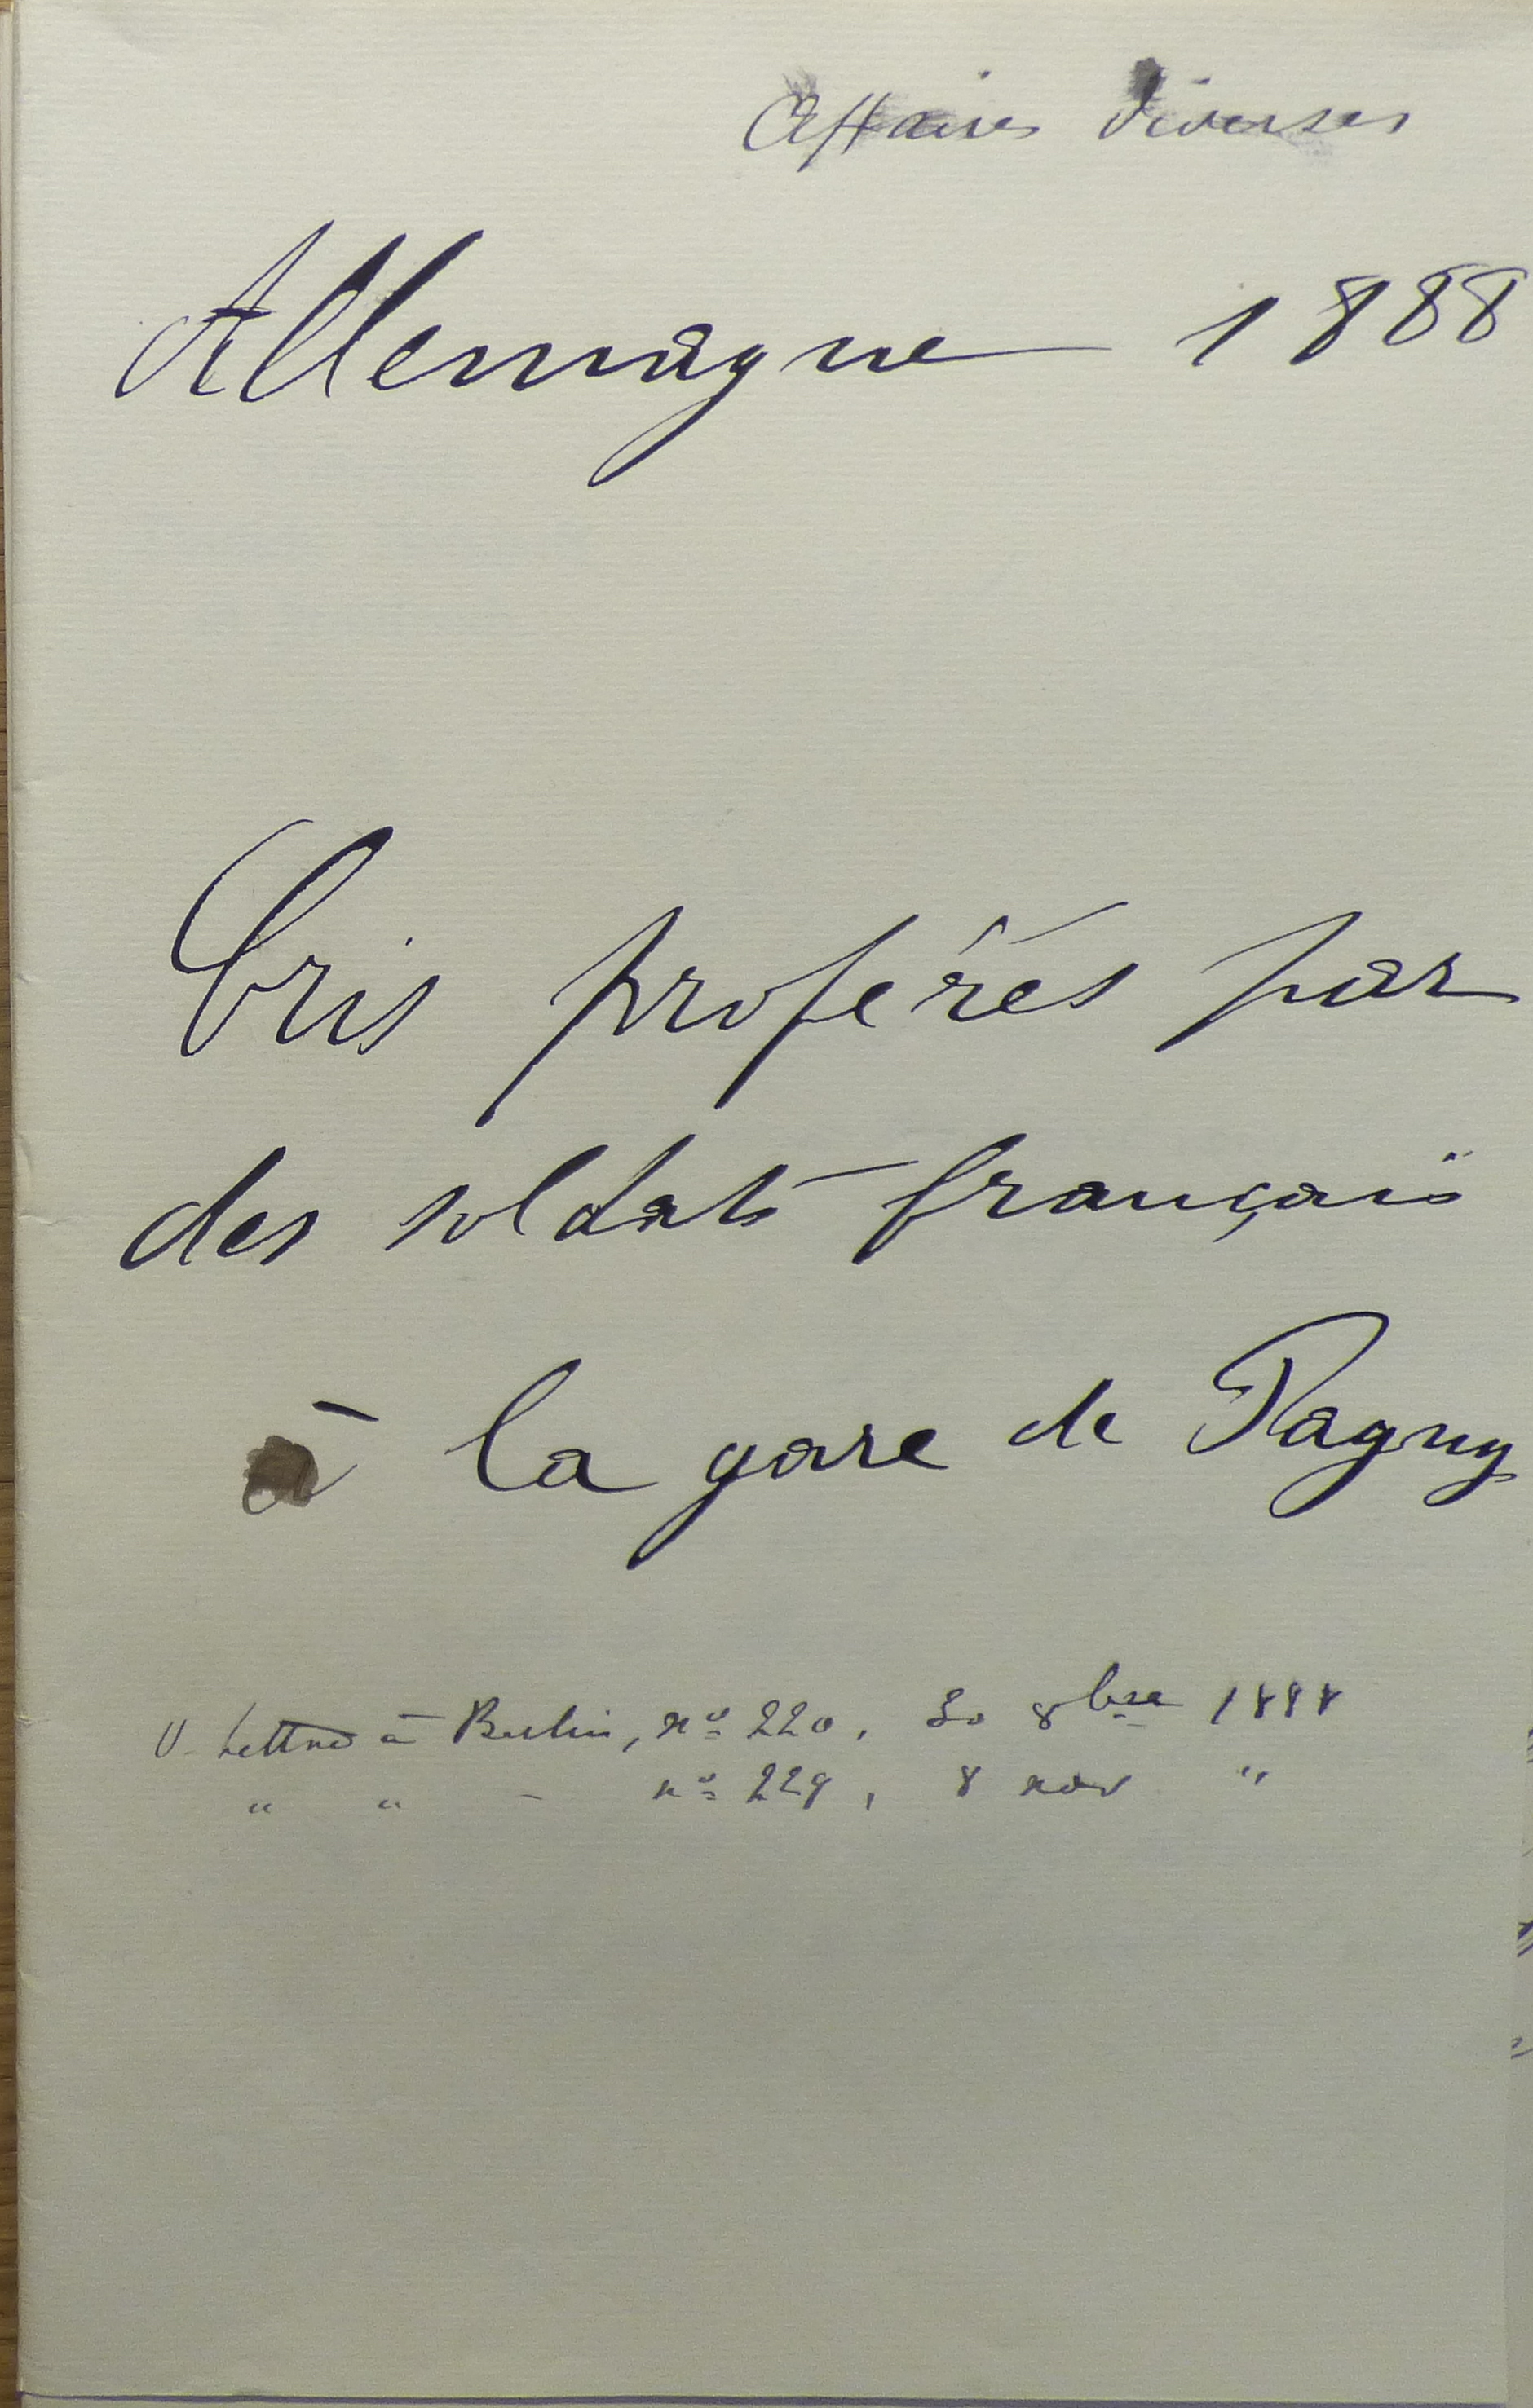 Affaires diverses
Allemagne 1888
Cris proférés par
des soldats français
à la gare de Pagny
V. Lettres à Berlin, nº 220, 30 8bre 1888
" " - nº 229, 8 nov "